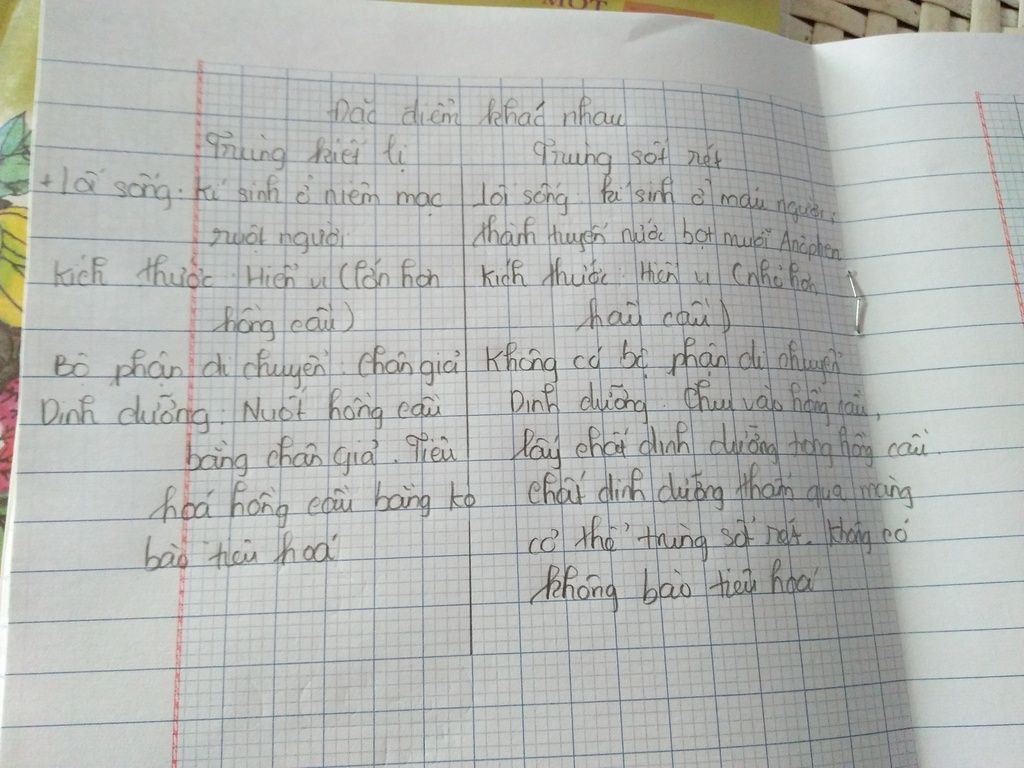 MỘT
Đặc điểm khác nhau
Trùng kiết lị
+ lối sống: kí sinh ở niêm mạc
ruột người
kích thước Hiển vi (lớn hơn
hồng cầu)
Bộ phận di chuyển. Chân giả
Dinh dưỡng: Nuốt hồng cầu
bằng chân giả. Tiêu
hoá hồng cầu bằng ko
bào tiêu hoá
Trùng sốt rét
lối sống kí sinh ở máu người,
thành tuyến nước bọt muỗi Anôphen
kích thước Hiển vi (nhỏ hơn
hầu cầu)
Không có bộ phận di chuyển
Dinh dưỡng. Chui vào hồng cầu,
lấy chất dinh dưỡng trong hồng cầu.
chất dinh dưỡng thấm qua màng
cơ thể trùng sốt rét. không có
không bào tiêu hoá